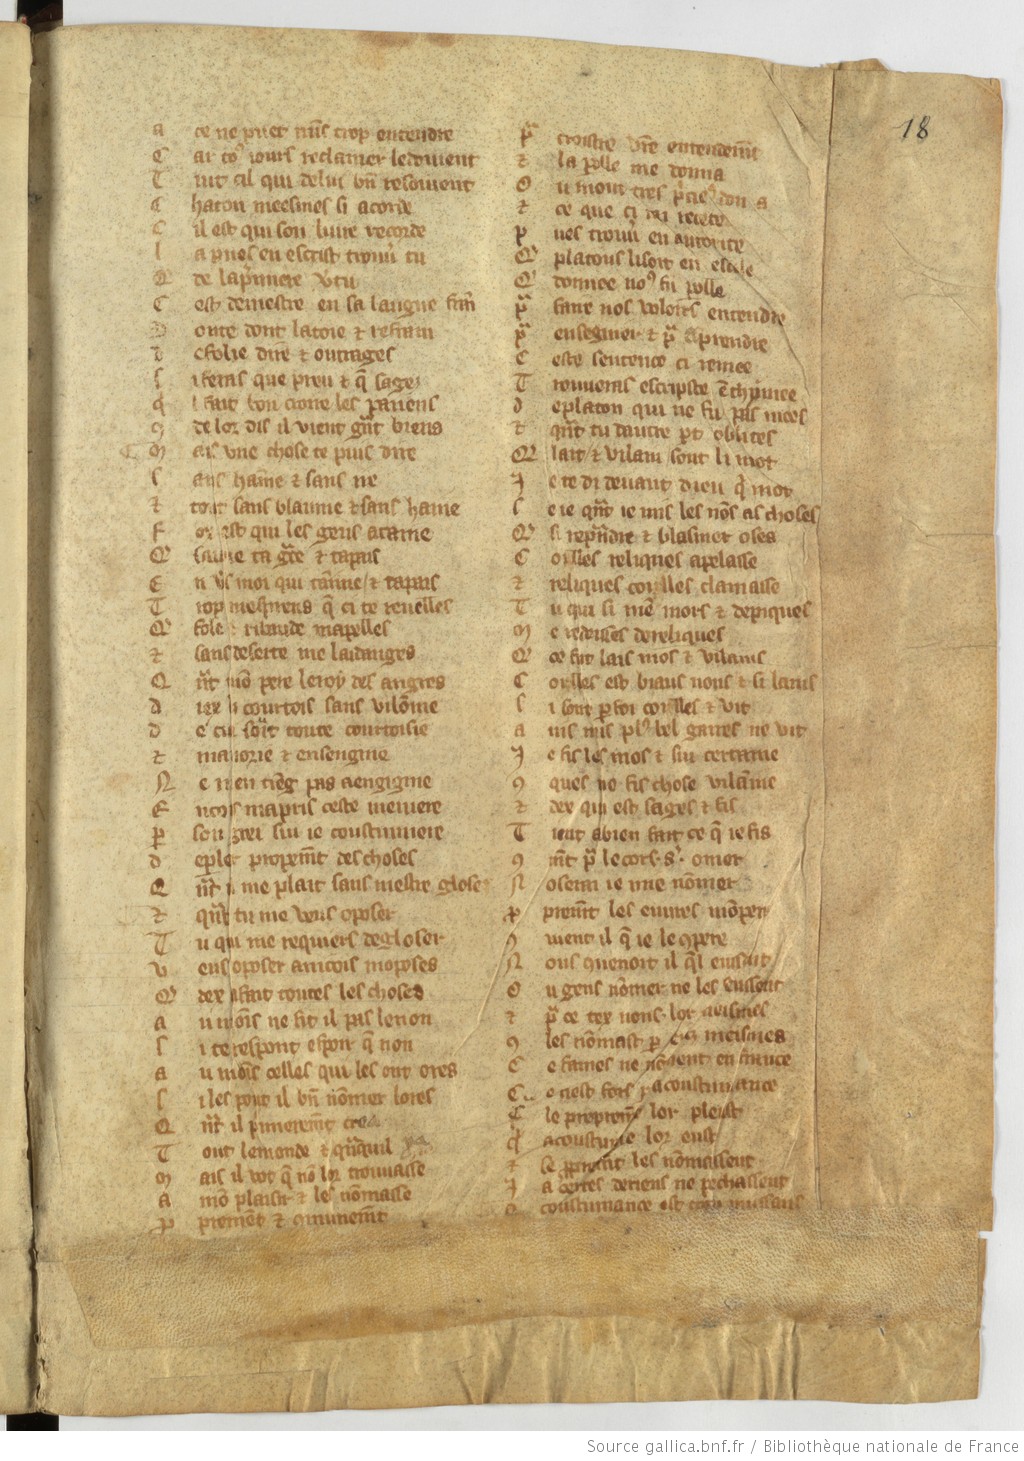 18
A ce ne puet nus trop entendre
C ar toꝰ iours reclamer le couient
T uit cil qui de lui bn̄ resoiuent
C haton meesmes si acorde
S il est qui son liure recorde
L a pues en escrist trouuer tu
Q̄ de la p̄miere v̄tu
C est de mestre en sa langue frain
D onte dont la toie et refrain
D e folie dire et outrages
S i feras que preu et q̄ sages
Q il fait bon croire les paiens
Q̄ de lor dis il vient gr̄nt biens
M ais vne chose te puis dire
S ans haine et sans ire
Et tout sans blasme et sans haine
F ox est qui les gens ataine
Q̄ sauue ta gr̄ce et ta pais
E n v̄s moi qui t'aime et ta pais
T rop mesprens q̄ ci te reuelles
Q̄ fole et ribaude m'apelles
Et sans deserte me laidanges
Q n̄t mō pere le roy des angres
D iex li courtois sans vilōnie
D e cui souit toute courtoisie
Et ma norrie et ensengnie
N e m'en tieng pas a engignie
E ncois m'aprist ceste meniere
P ar son gre sui ie coustumiere
D e parler propremēt des choses
Q n̄t il me plait sans mestre gloses
Et q̄nt tu me veus oposer
T u qui me requiers de gloser
V eus oposer aincois m'oposes
Q̄ dex ait fait toutes les choses
A u moīs ne fit il pas le non
S i te respont espoir q̄ non
A u moīs celles qui les ont ores
S i les pout il bn̄ nōmer lores
Q n̄t il p̄mieremt̄ crea
T out le monde et q̄nquil y a
M ais il vot q̄ nō lor trouuasse
A mō plaisir et les nōmasse
P ropremēt et cōmunemēt
P̄ croistre v̄re entendemēt
Et la parolle me donna
O u mout tres p̄cieꝰ don a
Et ce que ci t'ai recite
P ues trouuer en autorite
Q̄ platons lisoit en escole
Q̄ donnee noꝰ fu parolle
P̄ faire nos voloirs entendre
P̄ enseignier et p̄ aprendre
C este sentence ci rimee
T rouueras escripte en thymee
D e platon qui ne fu pas nices
Et q̄nt tu d'autre part oblices
Q̄ lait et vilain sont li mot
J e te di deuant dieu q̄ m'ot
S e ie q̄nt ie mis les nōs as choses
Q̄ si repr̄ndre et blasmer oses
C oilles reliques apelasse
Et reliques coilles clamasse
T u qui si m'en mors et depiques
M e redeisses de reliques
Q̄ ce fut lais mos et vilains
C oilles est biaus nons et si l'ains
S i sont par foi coilles et vit
A ins nus plꝰ bel gaires ne vit
J e fis les mos et sui certaine
Q̄ ques ne fis chose vilaine
Et dex qui est sages et fis
T ient a bien fait ce q̄ ie fis
C ōmt̄ p̄ le cors s. omer
N oseroi ie mie nōmer
P ropremt̄ les euures mō pere
C ōuient il q̄ ie le cōpere
N ons couenoit il q̄l eussent
O u gens nōmer ne les seussent
Et p̄ ce tex nons lor meismes
Q̄ les nōmast p̄ ces meismes
S e fames ne nōment en france
C e n'est fors p̄ acoustumance
C ar le propre nom lor pleust
Q̄ acoustume lor eust
Et se propremt̄ les nōmassent
J a certes de riens ne pechassent
A coustumance est trop puissans